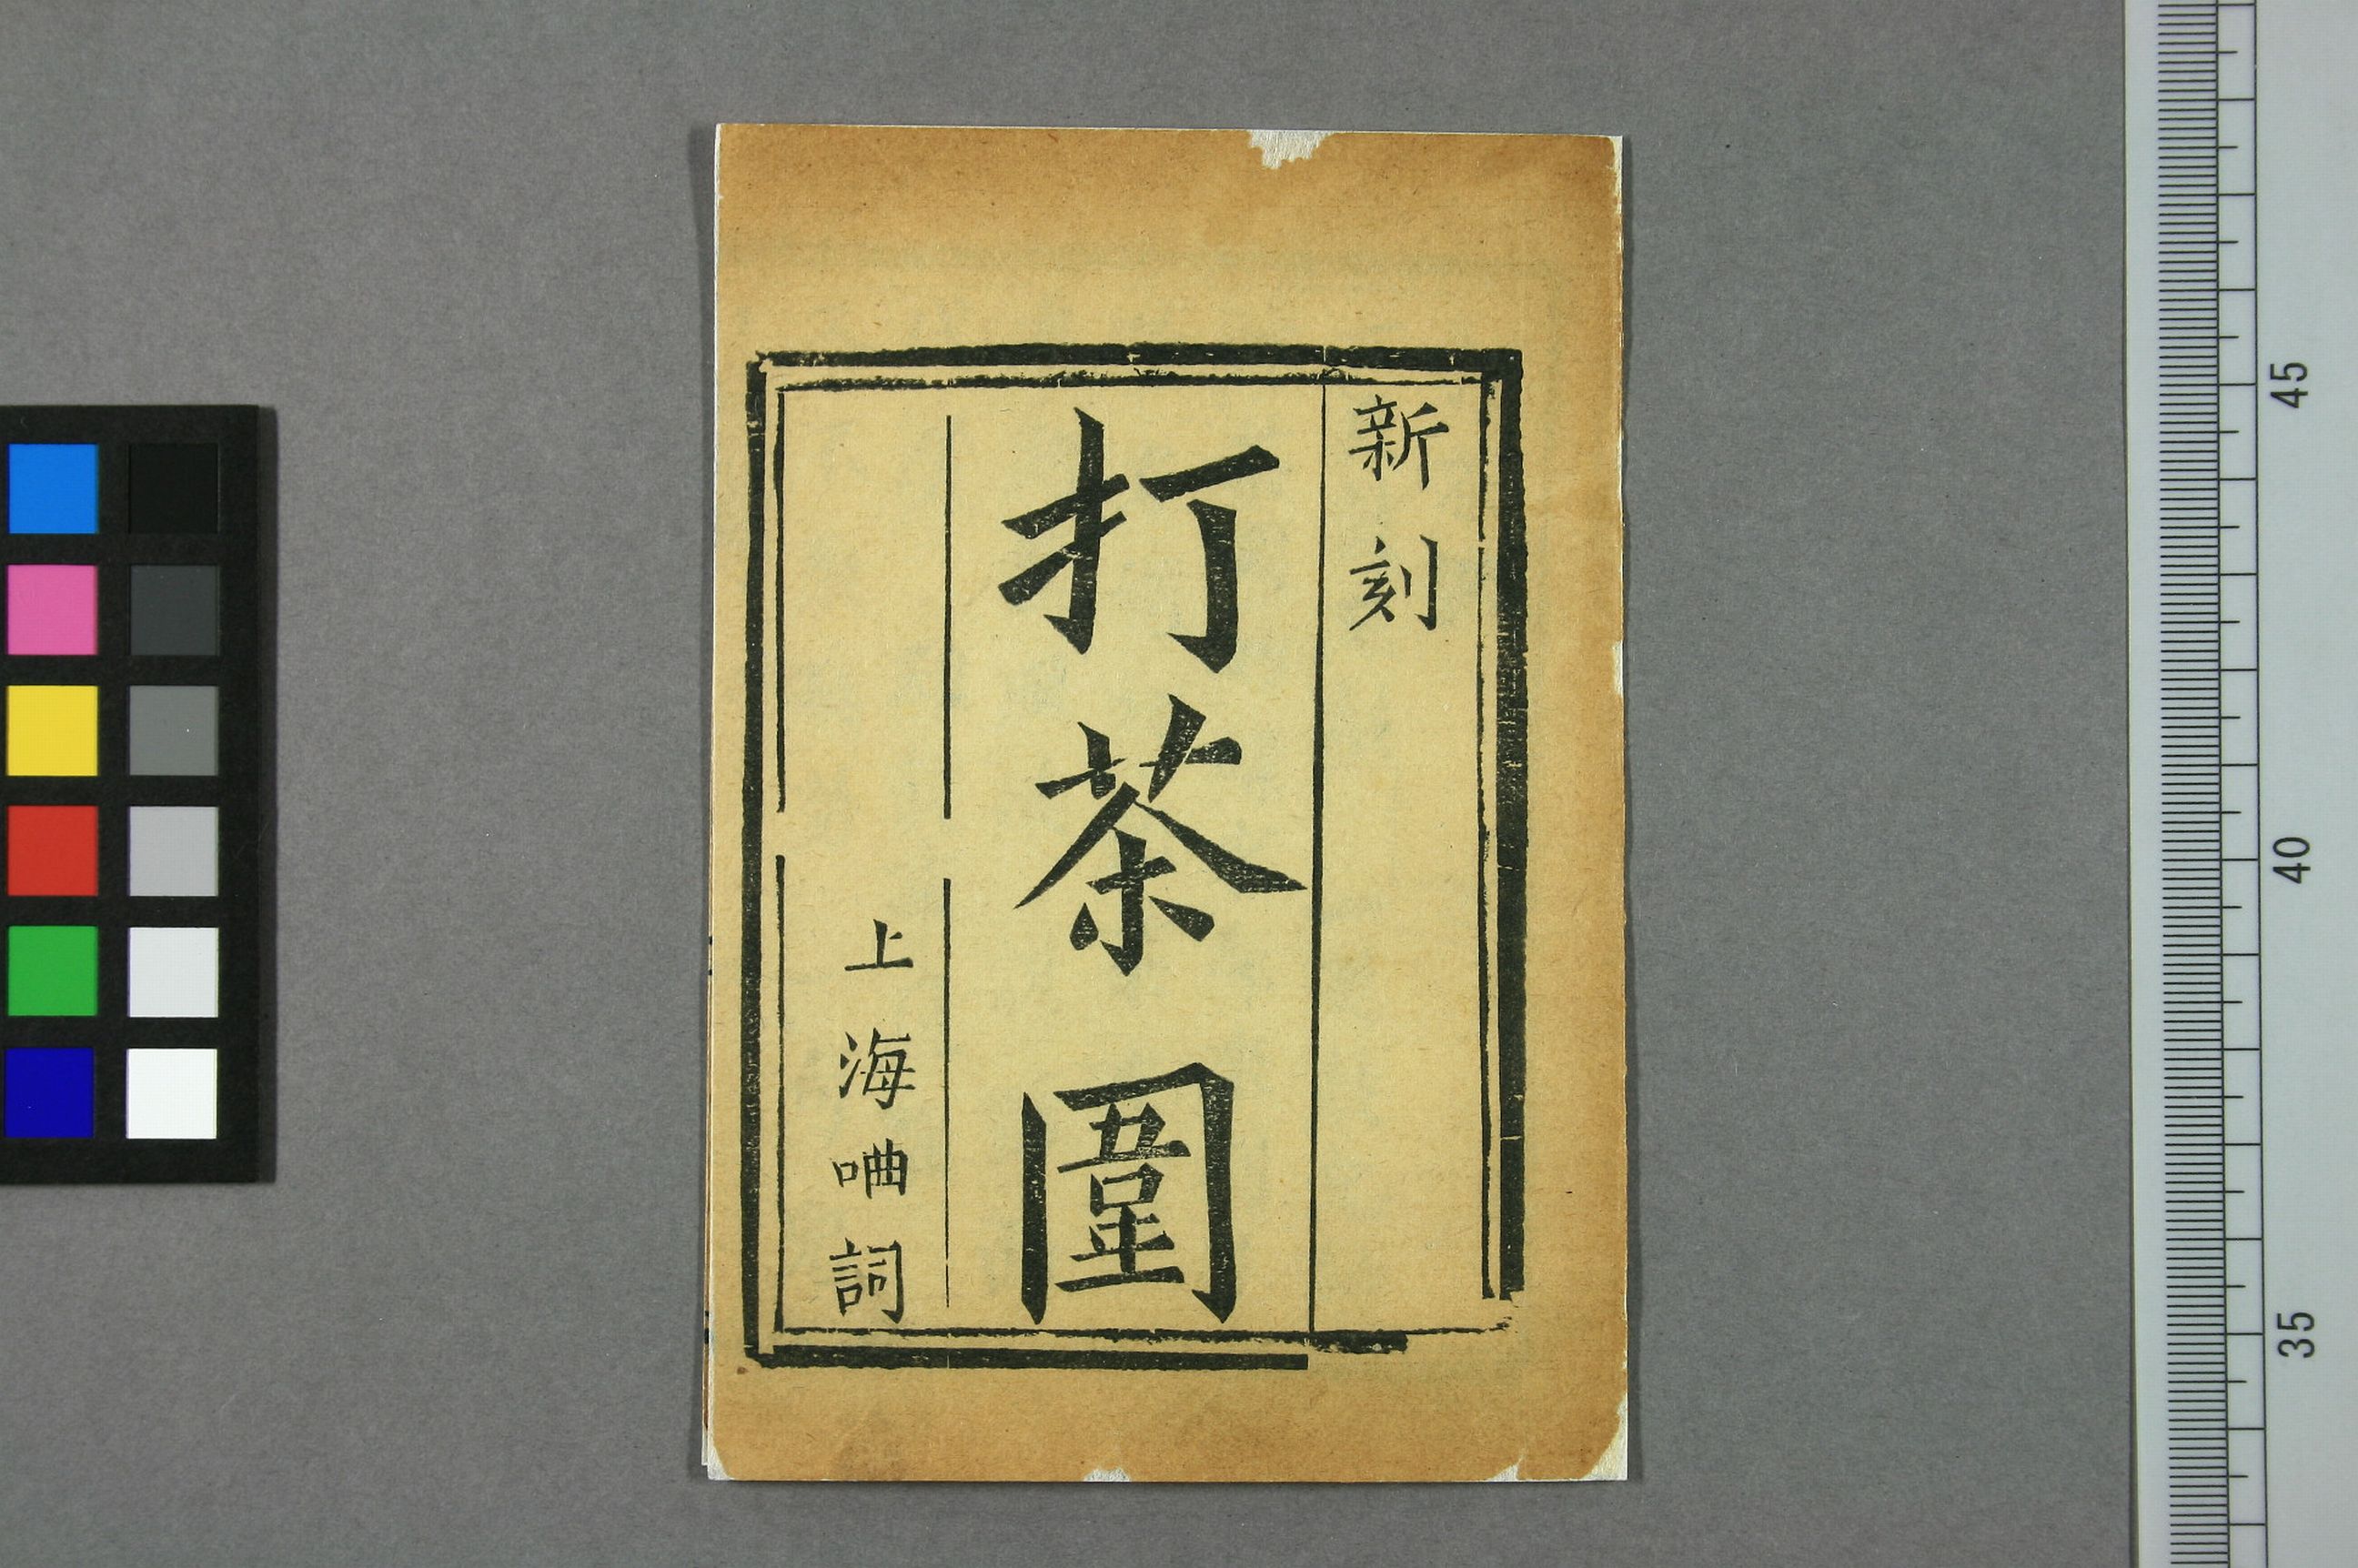 新刻
打茶圍
上海唒詞
45
40
35